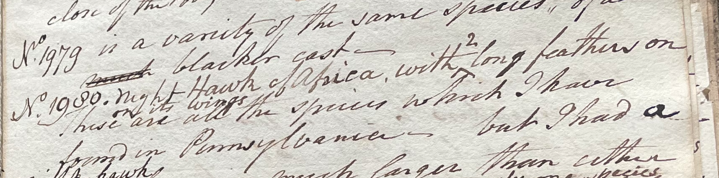 close of the
No. 1979 is a variety of the same species, of a
much blacker cast—
No. 1980. Night Hawk of Africa, with 2 long feathers on
on its wings
These are all the species which I have
found in Pennsylvania— but I had a
hawks much larger than either
species